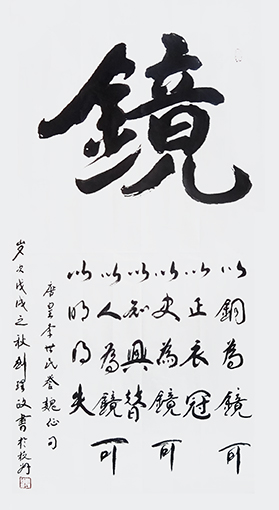 鏡
以銅為鏡可
以正衣冠
以史為鏡可
以知興替
以人為鏡可
以明得失
唐皇李世民魏征句
岁次戊戌之秋書於杭州